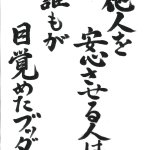 他人を
安心させる人は
誰もが
目覚めたブッダ